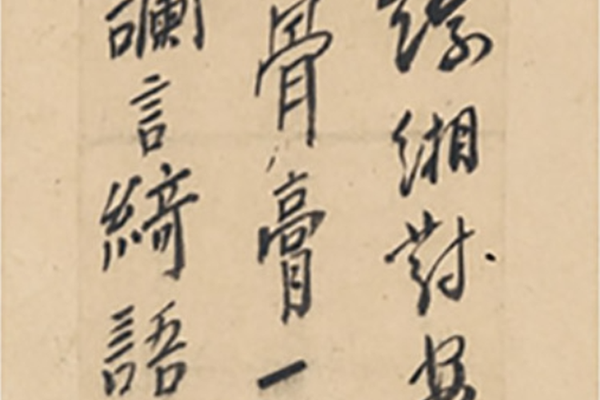 緗對
骨膏一
讕言綺語